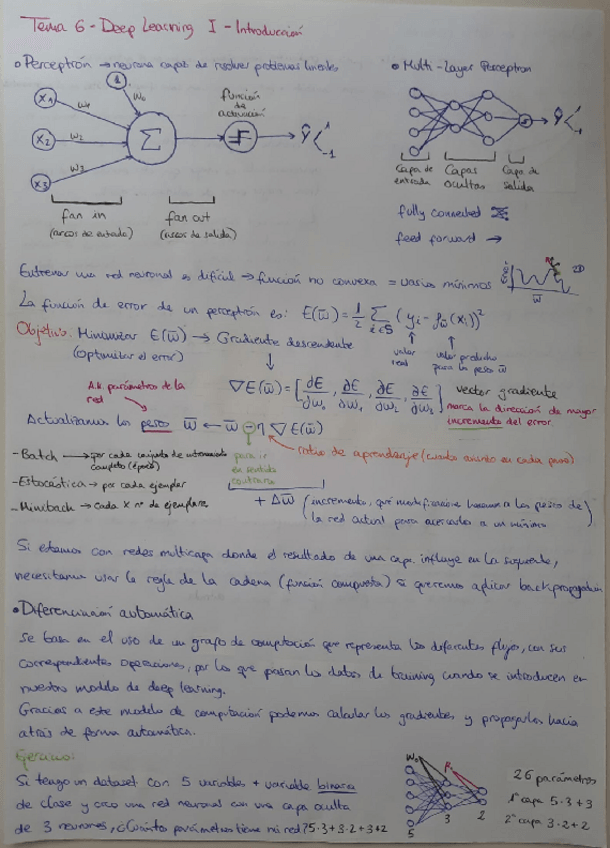 Tema 6 - Deep Learning I - Introducción
• Perceptrón → neurona capaz de resolver problemas lineales
1
X1
X2
X3
W1
W0
W2
W3
Σ
función
de
activación
ŷ
1
-1
fan in
(arcos de entrada)
fan out
(arcos de salida)
• Multi-Layer Perceptron
ŷ
1
-1
Capa de
entrada
Capas
ocultas
Capa de
salida
fully connected
feed forward →
Entrenar una red neuronal es difícil → función no convexa = varios mínimos
2D
w̄
La función de error de un perceptrón es: E(w̄) = 1/2 Σ i∈S (yi - fw̄(xi))²
valor
real
valor producho
para los pesos w̄
Objetivo: Minimizar E(w̄) → Gradiente descendente
(Optimizar el error)
A.K. parámetros de la
red
∇E(w̄) = [∂E/∂w0, ∂E/∂w1, ∂E/∂w2, ∂E/∂w3] vector gradiente
marca la dirección de mayor
incremento del error.
Actualizamos los pesos w̄ ← w̄ - η ∇E(w̄)
para ir
en sentido
contrario
ratio de aprendizaje (cuanto avanzo en cada paso)
- Batch → por cada conjunto de entrenamiento
completo (época)
- Estocástica → por cada ejemplar
- Minibach → cada X nº de ejemplares
+ Δw̄ (incremento, qué modificacione hacemos a los pesos de
la red actual para acercarlos a un mínimo)
Si estamos con redes multicapa donde el resultado de una capa influye en la siguiente,
necesitamos usar la regla de la cadena (función compuesta) si queremos aplicar backpropagation
• Diferenciación automática
Se basa en el uso de un grafo de computación que representa los diferentes flujos, con sus
correspondientes operaciones, por los que pasan los datos de training cuando se introducen en
nuestro modelo de deep learning.
Gracias a este modelo de computación podemos calcular los gradientes y propagarlos hacia
atrás de forma automática.
Ejercicio:
Si tengo un dataset con 5 variables + variable binaria
de clase y creo una red neuronal con una capa oculta
de 3 neuronas, ¿Cuántos parámetros tiene mi red? 5·3+3·2+3+2
W0
5
3
2
26 parámetros
1ª capa 5·3+3
2ª capa 3·2+2